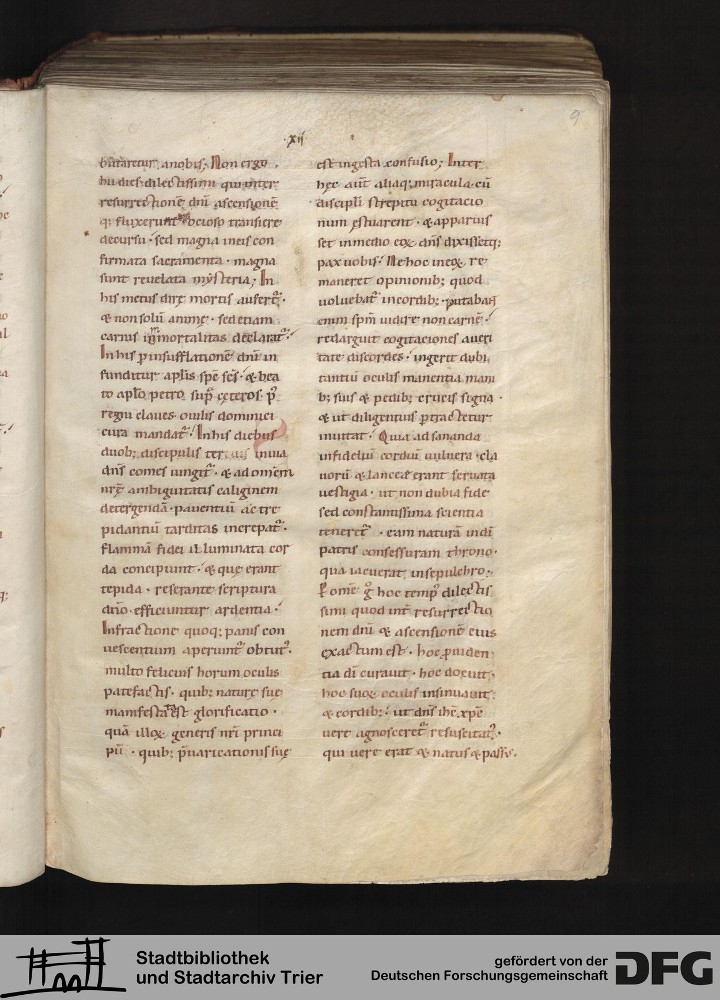 ·xij
9
butaretur anobis; Non ergo
hii dies dilectissimi qui inter
resurrectionē dn̄i ascensionē
q; fluxerunt ocioso transiere
decursu · sed magna in eis con
firmata sacramenta · magna
sunt reuelata mẏsteria; In
his metus dirę mortis aufert᷑ ·
& non solū animę · sed etiam
carnis immortalitas declarat᷑ ·
In his p insufflationē dn̄i in
funditur apl̄is sp̄c sc̄s · & bea
to apl̄o petro sup̄ cęteros p᷑
regni claues ouilis dominici
cura mandat᷑ · In his diebus
duob; discipulis tertius in uia
dn̄s comes iungit᷑ · & ad omnem
nr̄ę ambiguitatis caliginem
detergendā · pauentiū ac tre
pidantiū tarditas increpat᷑ ·
flammā fidei illuminata cor
da concipiunt · & quę erant
tepida · reserante scriptura
dn̄o · efficiuntur ardentia ·
Infractione quoq; panis con
uescentium aperiunt᷑ obtut᷑ ·
multo felicius horum oculis
patefactis · quib; naturę suę
manifestata est glorificatio ·
quā illoꝝ generis nr̄i princi
pū · quib; p̄uaricationis suę
est ingesta confusio; Inter
hęc aut̄ aliaq; miracula · cū
discipli strepitu cogitacio
num ęstuarent · & apparuis
set in medio eoꝝ dn̄s dixissetq;
pax uobis · Ne hoc in eoꝝ re
maneret opinionib; quod
uoluebat᷑ in cordib; · putabant
enim sp̄m uidere non carnē ·
redarguit cogitaciones a ueri
tate discordes · ingerit dubi
tantiū oculis manentia mani
b; suis & pedib; crucis signa ·
& ut diligentius ptractetur
inuitat · Quia ad sananda
infideliū cordiū uulnera · cla
uorū & lanceę erant seruata
uestigia · ut non dubia fide
sed constantissima scientia
teneret᷑ · eam naturā in dī
patris consessuram throno ·
qua iacuerat in sepulchro ·
P omē g̊ hoc temp᷒ dilectis
simi quod int̄ resurrectio
nem dn̄i & ascensionē eius
exactum est · hoc ꝓuiden
tia dī curauit · hoc docuit ·
hoc suoꝝ oculis insinuauit
& cordib; · ut dn̄s ihc̄ xp̄c
uere agnosceret᷑ resuscitat᷒ ·
qui uere erat & natus & pass᷒ ·
Stadtbibliothek
und Stadtarchiv Trier
gefördert von der
Deutschen Forschungsgemeinschaft
DFG